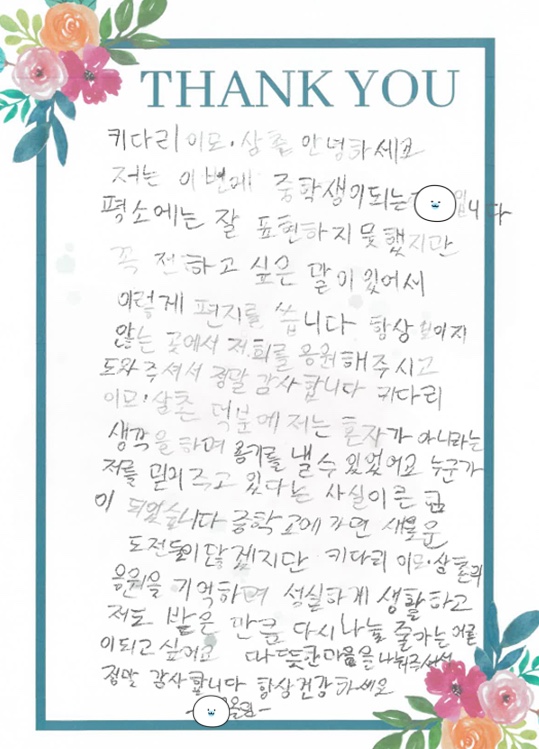 THANK YOU
키다리 이모·삼촌 안녕하세요
저는 이번에 중학생이되는 입니다
평소에는 잘 표현하지 못했지만
꼭 전하고 싶은 말이 있어서
이렇게 편지를 씁니다 항상 보이지
않는 곳에서 저희를 응원해주시고
도와주셔서 정말 감사합니다 키다리
이모·삼촌 덕분에 저는 혼자가 아니라는
생각을 하며 용기를 낼 수 있었어요 누군가
저를 믿어주고 있다는 사실이 큰 힘
이 되었습니다 중학교에 가면 새로운
도전들이 많겠지만 키다리 이모·삼촌의
응원을 기억하며 성실하게 생활하고
저도 받은 만큼 다시 나눌 줄 아는 어른
이되고 싶어요 따뜻한마음을 나눠주셔서
정말 감사합니다 항상건강하세요
올림-